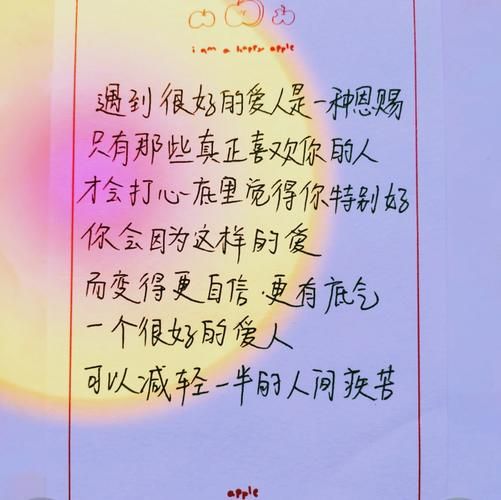 i am a happy apple
遇到很好的爱人是一种恩赐
只有那些真正喜欢你的人
才会打心底里觉得你特别好
你会因为这样的爱
而变得更自信.更有底气
一个很好的爱人
可以减轻一半的人间疾苦
apple